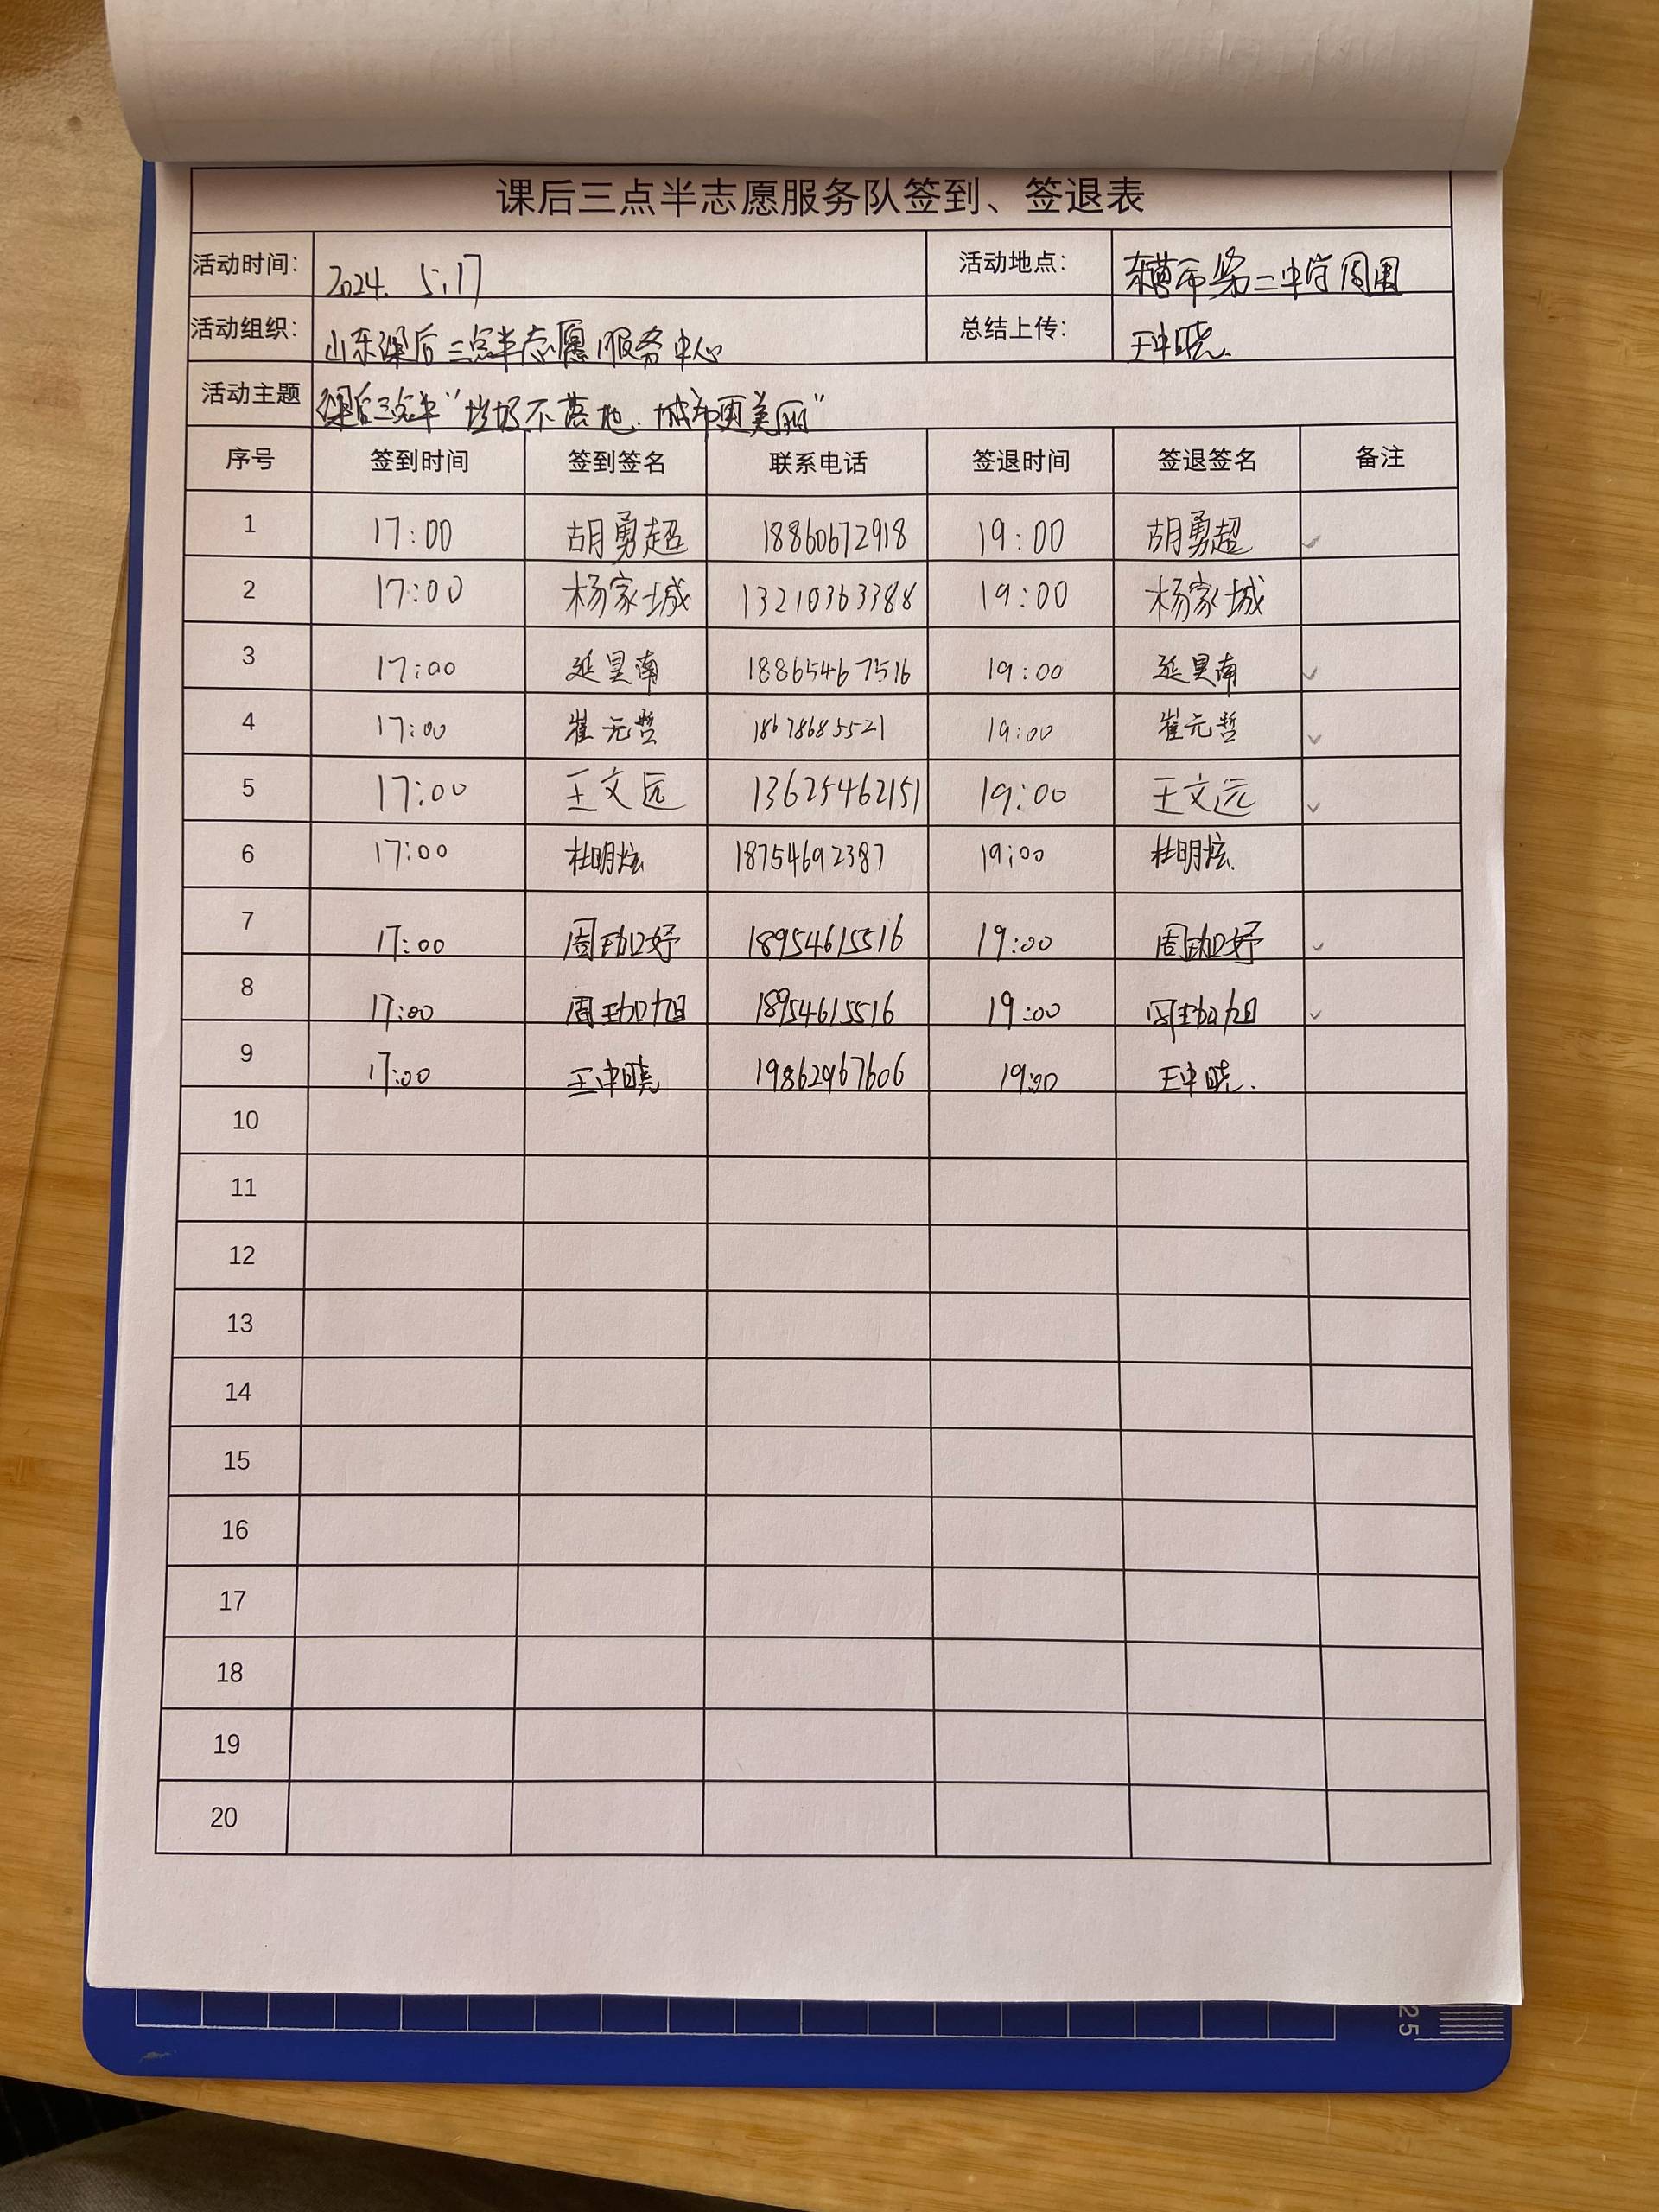 课后三点半志愿服务队签到、签退表
活动时间： 2024. 5.17 活动地点： 东营市第二中学周围
活动组织： 山东课后三点半志愿服务中心 总结上传： 王中晓
活动主题 课后三点半“垃圾不落地.城市更美丽”
序号 签到时间 签到签名 联系电话 签退时间 签退签名 备注
1 17:00 胡勇超 18860672918 19:00 胡勇超 ✓
2 17:00 杨家城 13210363388 19:00 杨家城
3 17:00 延昊南 18865467516 19:00 延昊南 ✓
4 17:00 崔元哲 18678685521 19:00 崔元哲 ✓
5 17:00 王文远 13625462151 19:00 王文远 ✓
6 17:00 杜明炫 18754692387 19:00 杜明炫
7 17:00 周珈妤 18954615516 19:00 周珈妤 ✓
8 17:00 周珈旭 18954615516 19:00 周珈旭 ✓
9 17:00 王中晓 19862967606 19:00 王中晓.
10
11
12
13
14
15
16
17
18
19
20
25